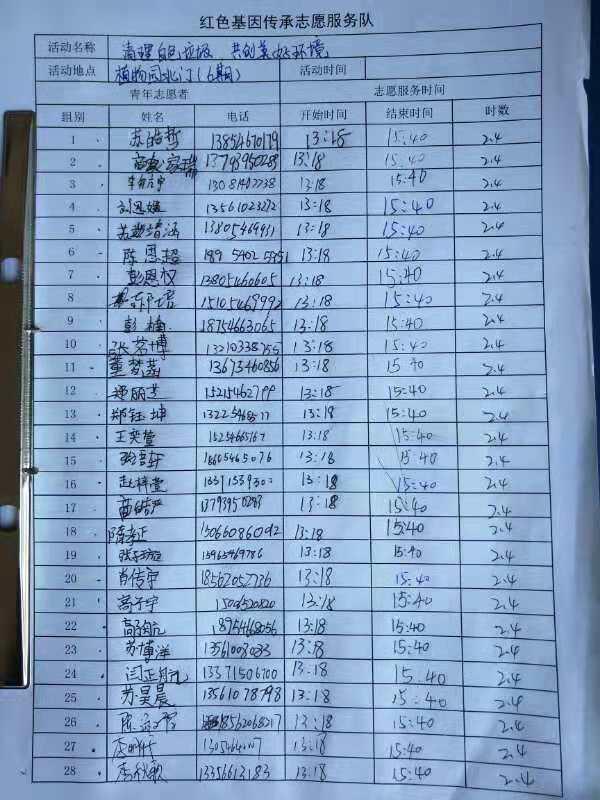 红色基因传承志愿服务队
活动名称 清理白色垃圾 共创美好环境
活动地点 植物园北门(6期) 活动时间
青年志愿者 志愿服务时间
组别 姓名 电话 开始时间 结束时间 时数
1 苏皓哲 13854670179 13:18 15:40 2.4
2 13:18 15:40 2.4
3 13081402238 13:18 15:40 2.4
4 刘恩媛 13561023272 13:18 15:40 2.4
5 13805469931 13:18 15:40 2.4
6 陈恩超 13:18 15:40 2.4
7 彭恩权 13805460605 13:18 15:40 2.4
8 15105469992 13:18 15:40 2.4
9 彭楠 18754663065 13:18 15:40 2.4
10 张茗博 13210338755 13:18 15:40 2.4
11 董梦菡 13673460856 13:18 15:40 2.4
12 郑丽芝 15215462799 13:18 15:40 2.4
13 郑钰坤 13:18 15:40 2.4
14 王奕萱 15254665767 13:18 15:40 2.4
15 18605465076 13:18 15:40 2.4
16 赵梓萱 13371539300 13:18 15:40 2.4
17 13:18 15:40 2.4
18 隋孝正 15066086092 13:18 15:40 2.4
19 15963469786 13:18 15:40 2.4
20 肖传宇 18562052736 13:18 15:40 2.4
21 高子宇 13:18 15:40 2.4
22 高子航 13:18 15:40 2.4
23 苏博洋 13561008033 13:18 15:40 2.4
24 闫正航 13371506700 13:18 15:40 2.4
25 苏昊晨 13561078798 13:18 15:40 2.4
26 18562068217 13:18 15:40 2.4
27 13:18 15:40 2.4
28 13356613183 13:18 15:40 2.4